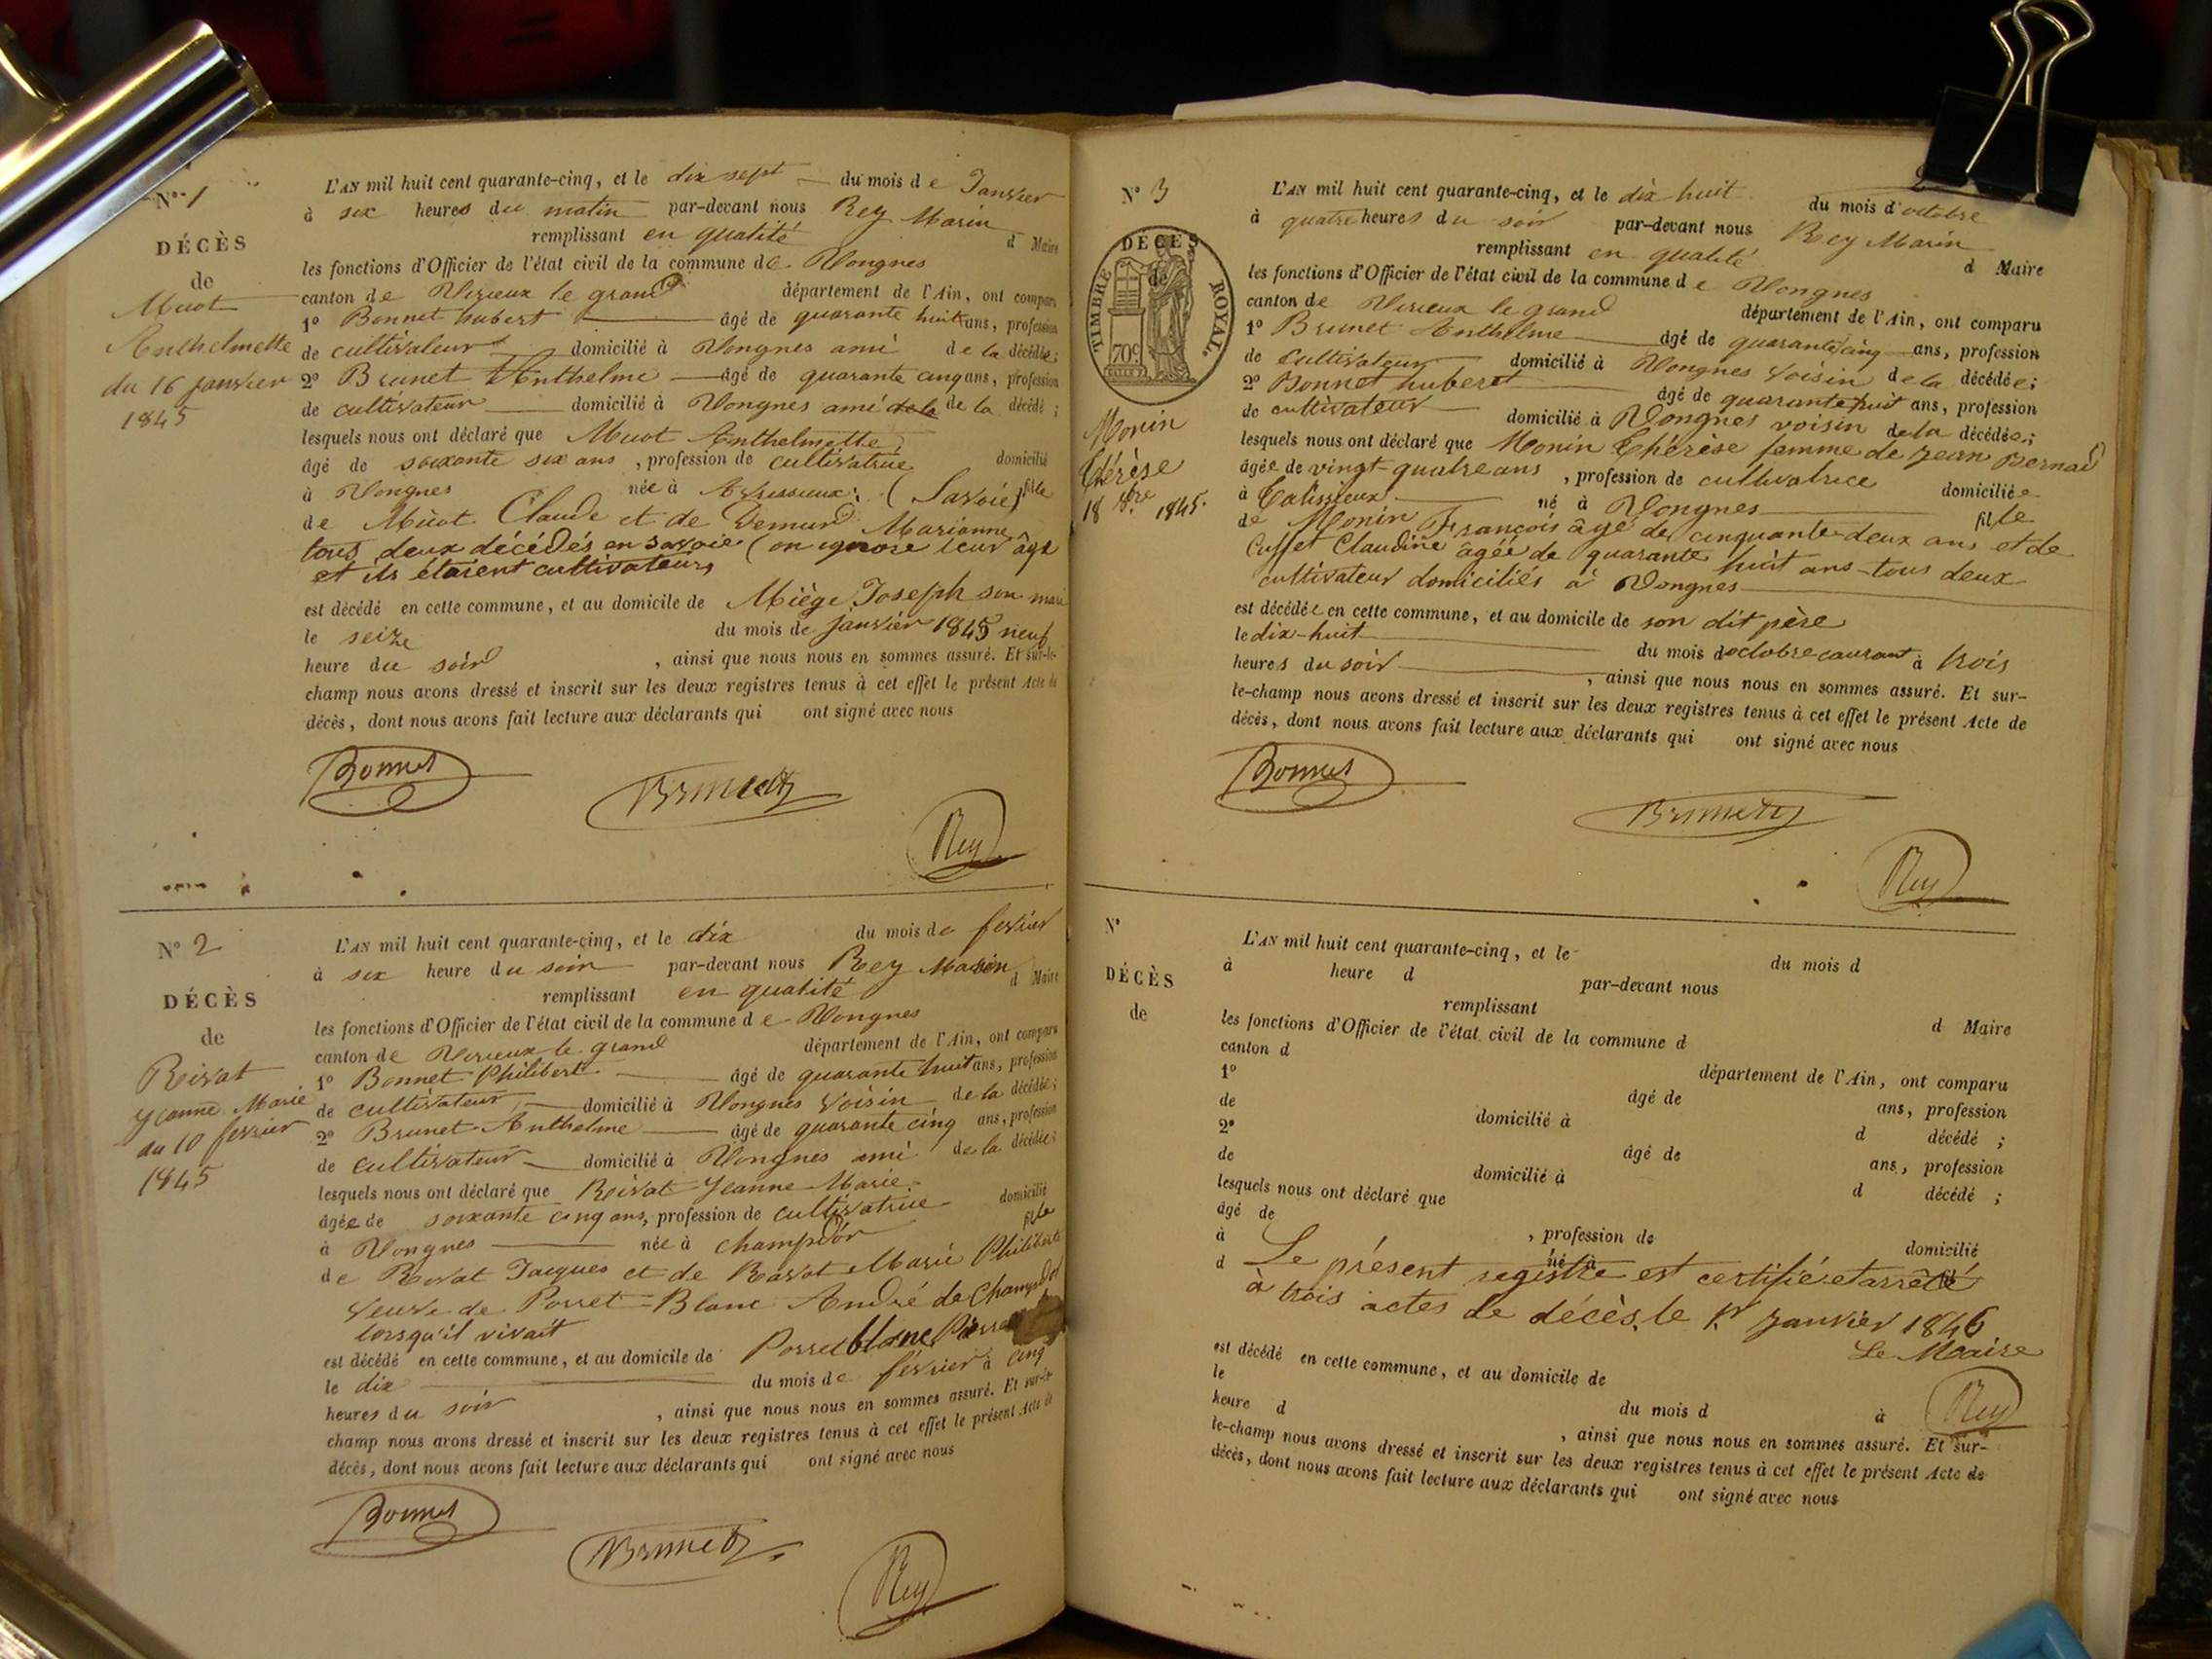 N° 1
DÉCÈS
de
Muot
Anthelmette
du 16 janvier
1845
L'AN mil huit cent quarante-cinq, et le dix sept du mois de Janvier
à six heures du matin par-devant nous Rey Marin
remplissant en qualité d Maire
les fonctions d'Officier de l'état civil de la commune de Vongnes
canton de Virieux le grand département de l'Ain, ont comparu
1° Bonnet hubert âgé de quarante huit ans, profession
de cultivateur domicilié à Vongnes ami de la décédée;
2° Brunet Anthelme âgé de quarante cinq ans, profession
de cultivateur domicilié à Vongnes ami de la décédé;
lesquels nous ont déclaré que Muot Anthelmette
âgé de soixante six ans, profession de cultivatrice domicilié
à Vongnes née à (Savoie) fille
de Muot Claude et de Demurd Marianne
tous deux décédés en Savoie (on ignore leur âge
et ils étaient cultivateurs
est décédé en cette commune, et au domicile de Miège Joseph son mari
le seize du mois de janvier 1845 neuf
heure du soir, ainsi que nous nous en sommes assuré. Et sur-le-
champ nous avons dressé et inscrit sur les deux registres tenus à cet effet le présent Acte de
décès, dont nous avons fait lecture aux déclarants qui ont signé avec nous
Bonnet
Brunet
Rey
N° 2
DÉCÈS
de
Rivat
Jeanne Marie
du 10 fevrier
1845
L'AN mil huit cent quarante-cinq, et le dix du mois de fevrier
à six heure du soir par-devant nous Rey Marin
remplissant en qualité d Maire
les fonctions d'Officier de l'état civil de la commune de Vongnes
canton de Virieux le grand département de l'Ain, ont comparu
1° Bonnet Philibert âgé de quarante huit ans, profession
de cultivateur domicilié à Vongnes voisin de la décédée;
2° Brunet Anthelme âgé de quarante cinq ans, profession
de cultivateur domicilié à Vongnes ami de la décédée;
lesquels nous ont déclaré que Rivat Jeanne Marie
âgée de soixante cinq ans, profession de cultivatrice domicilié
à Vongnes née à champdor fille
de Rivat Jacques et de Ravat Marie Philiberte
veuve de Porret-Blanc André de Champdor
lorsqu'il vivait
est décédé en cette commune, et au domicile de Porret blanc Pierre
le dix du mois de février à cinq
heures du soir, ainsi que nous nous en sommes assuré. Et sur-le-
champ nous avons dressé et inscrit sur les deux registres tenus à cet effet le présent Acte de
décès, dont nous avons fait lecture aux déclarants qui ont signé avec nous
Bonnet
Brunet
Rey
2
N° 3
DÉCÈS
de
TIMBRE ROYAL.
70c
Monin
Thérèse
18 8bre 1845.
L'AN mil huit cent quarante-cinq, et le dix huit du mois d'octobre
à quatre heures du soir par-devant nous Rey Marin
remplissant en qualité d Maire
les fonctions d'Officier de l'état civil de la commune de Vongnes
canton de Virieux le grand département de l'Ain, ont comparu
1° Brunet Anthelme âgé de quarante cinq ans, profession
de cultivateur domicilié à Vongnes voisin de la décédée;
2° Bonnet hubert âgé de quarante huit ans, profession
de cultivateur domicilié à Vongnes voisin de la décédée;
lesquels nous ont déclaré que Monin Thérèse femme de Jean Bernad
âgée de vingt-quatre ans, profession de cultivatrice domiciliée
à Talissieux né à Vongnes fille
de Monin François âgé de cinquante-deux ans et de
Cuffet Claudine âgée de quarante huit ans - tous deux
cultivateur domiciliés à Vongnes
est décédée en cette commune, et au domicile de son dit père
le dix-huit du mois d'octobre courant à trois
heures du soir, ainsi que nous nous en sommes assuré. Et sur-
le-champ nous avons dressé et inscrit sur les deux registres tenus à cet effet le présent Acte de
décès, dont nous avons fait lecture aux déclarants qui ont signé avec nous
Bonnet
Brunet
Rey
N°
DÉCÈS
de
L'AN mil huit cent quarante-cinq, et le du mois d
à heure d par-devant nous
remplissant d Maire
les fonctions d'Officier de l'état civil de la commune d
canton d département de l'Ain, ont comparu
1° âgé de ans, profession
de domicilié à d décédé;
2° âgé de ans, profession
de domicilié à d décédé;
lesquels nous ont déclaré que
âgé de, profession de domicilié
à né à
d Le présent registre est certifié et arrêté
à trois actes de décès, le 1er Janvier 1846
Le Maire
Rey
est décédé en cette commune, et au domicile de
le du mois d à
heure d, ainsi que nous nous en sommes assuré. Et sur-
le-champ nous avons dressé et inscrit sur les deux registres tenus à cet effet le présent Acte de
décès, dont nous avons fait lecture aux déclarants qui ont signé avec nous